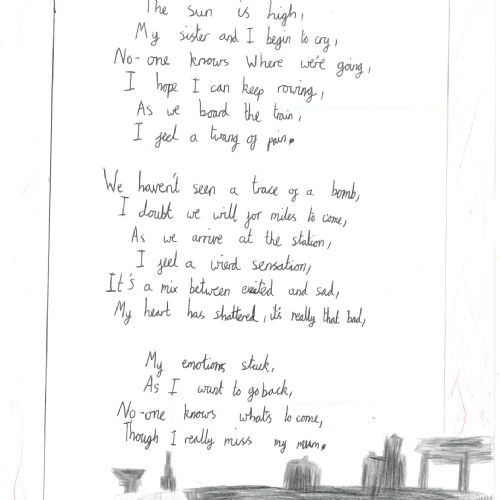 The sun is high,
My sister and I begin to cry,
No-one knows where we're going,
I hope I can keep rowing,
As we board the train,
I feel a twang of pain.
We haven't seen a trace of a bomb,
I doubt we will for miles to come,
As we arrive at the station,
I feel a wierd sensation,
It's a mix between exited and sad,
My heart has shattered, it's really that bad,
My emotions stuck,
As I want to go back,
No-one knows what's to come,
Though I really miss my mum.